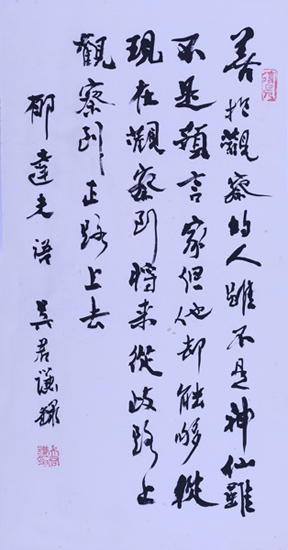 善於觀察的人雖不是神仙雖
不是預言家但他却能够從
現在觀察到將来從歧路上
觀察到正路上去
郁達夫語 吴君謙録